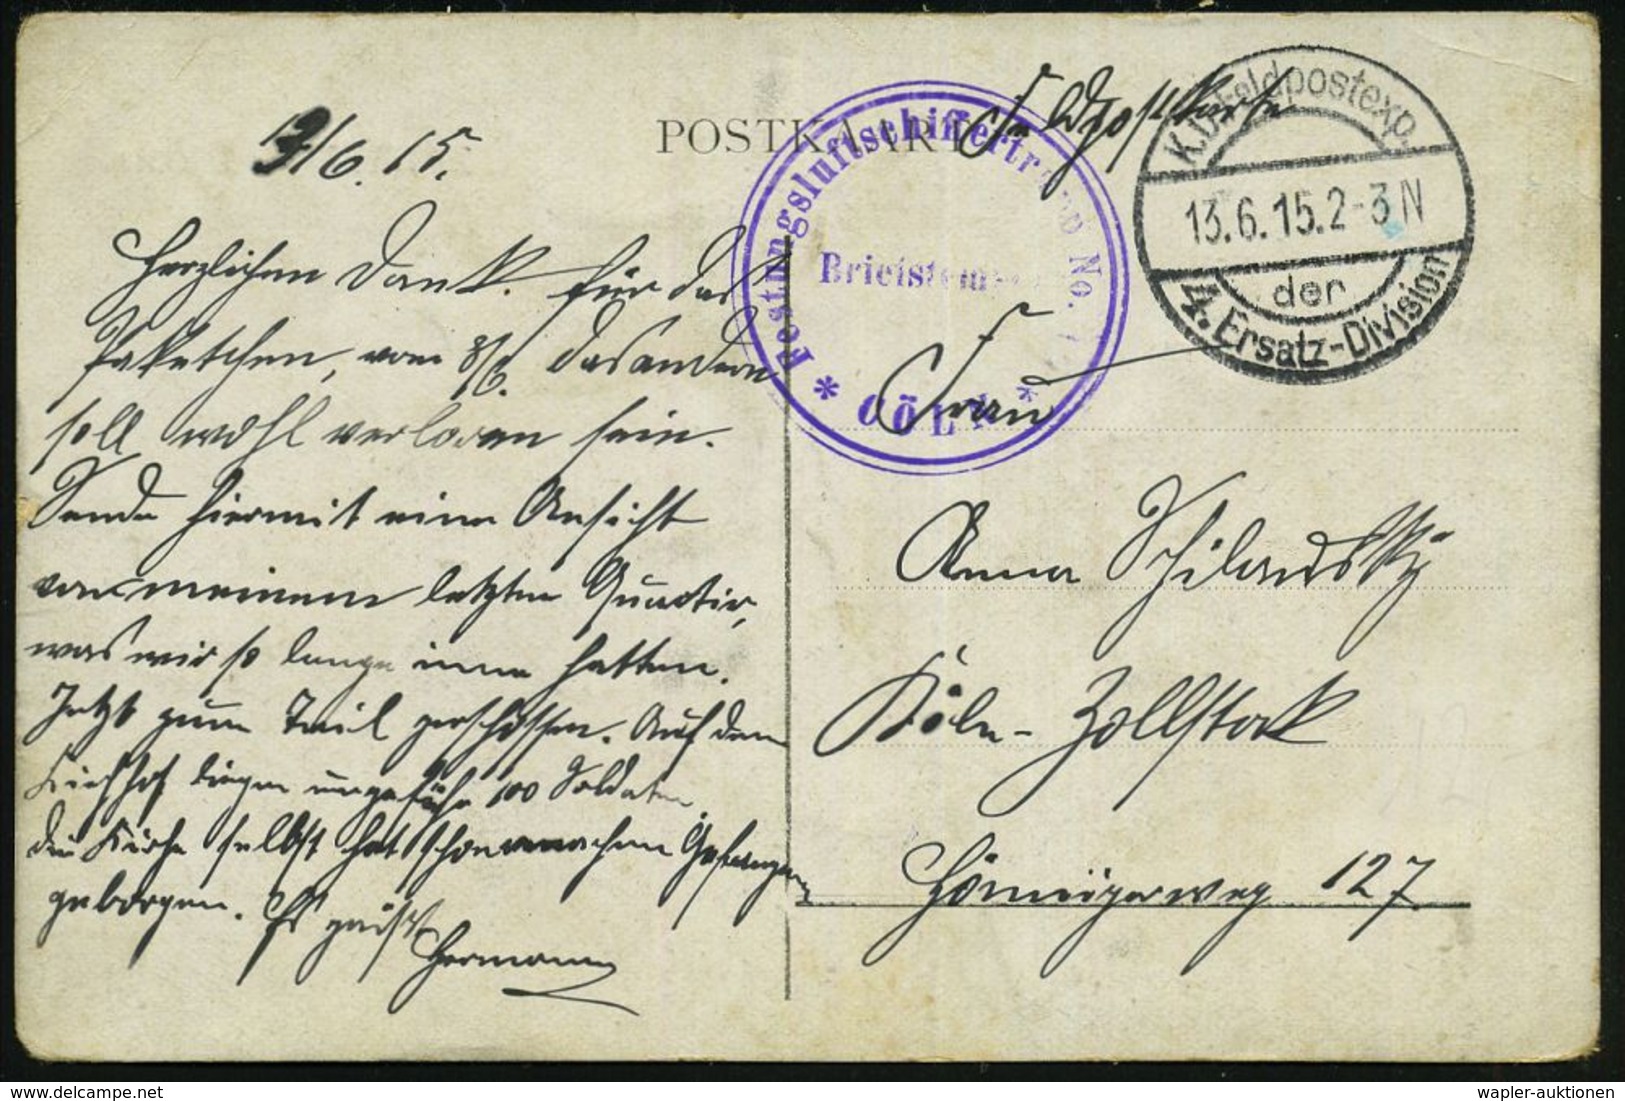 12/6. 15.
POSTKAART
Feldpostkarte
K.D. Feldpostexp.
13.6.15.2-3 N
der
4. Ersatz-Division
Festungsluftschiffertrupp No.
Briefstempel
* CÖLN *
Herzlichen Dank. für das
Paketchen, vom 8/6. das andern
soll wohl verloren sein.
Sende hiermit eine Ansicht
von meinem letzten Quartir,
was wir so lange inne hatten.
Jetzt zum Teil zerschossen. Auf dem
Kirchhof liegen ungefähr 100 Soldaten
die Kirche selbst hat schon manchem Gefangen
geborgen. Es grüßt
Hermann
Frau
Anna Schilawsky
Köln-Zollstock
Höningerweg 127
wapler-auktionen